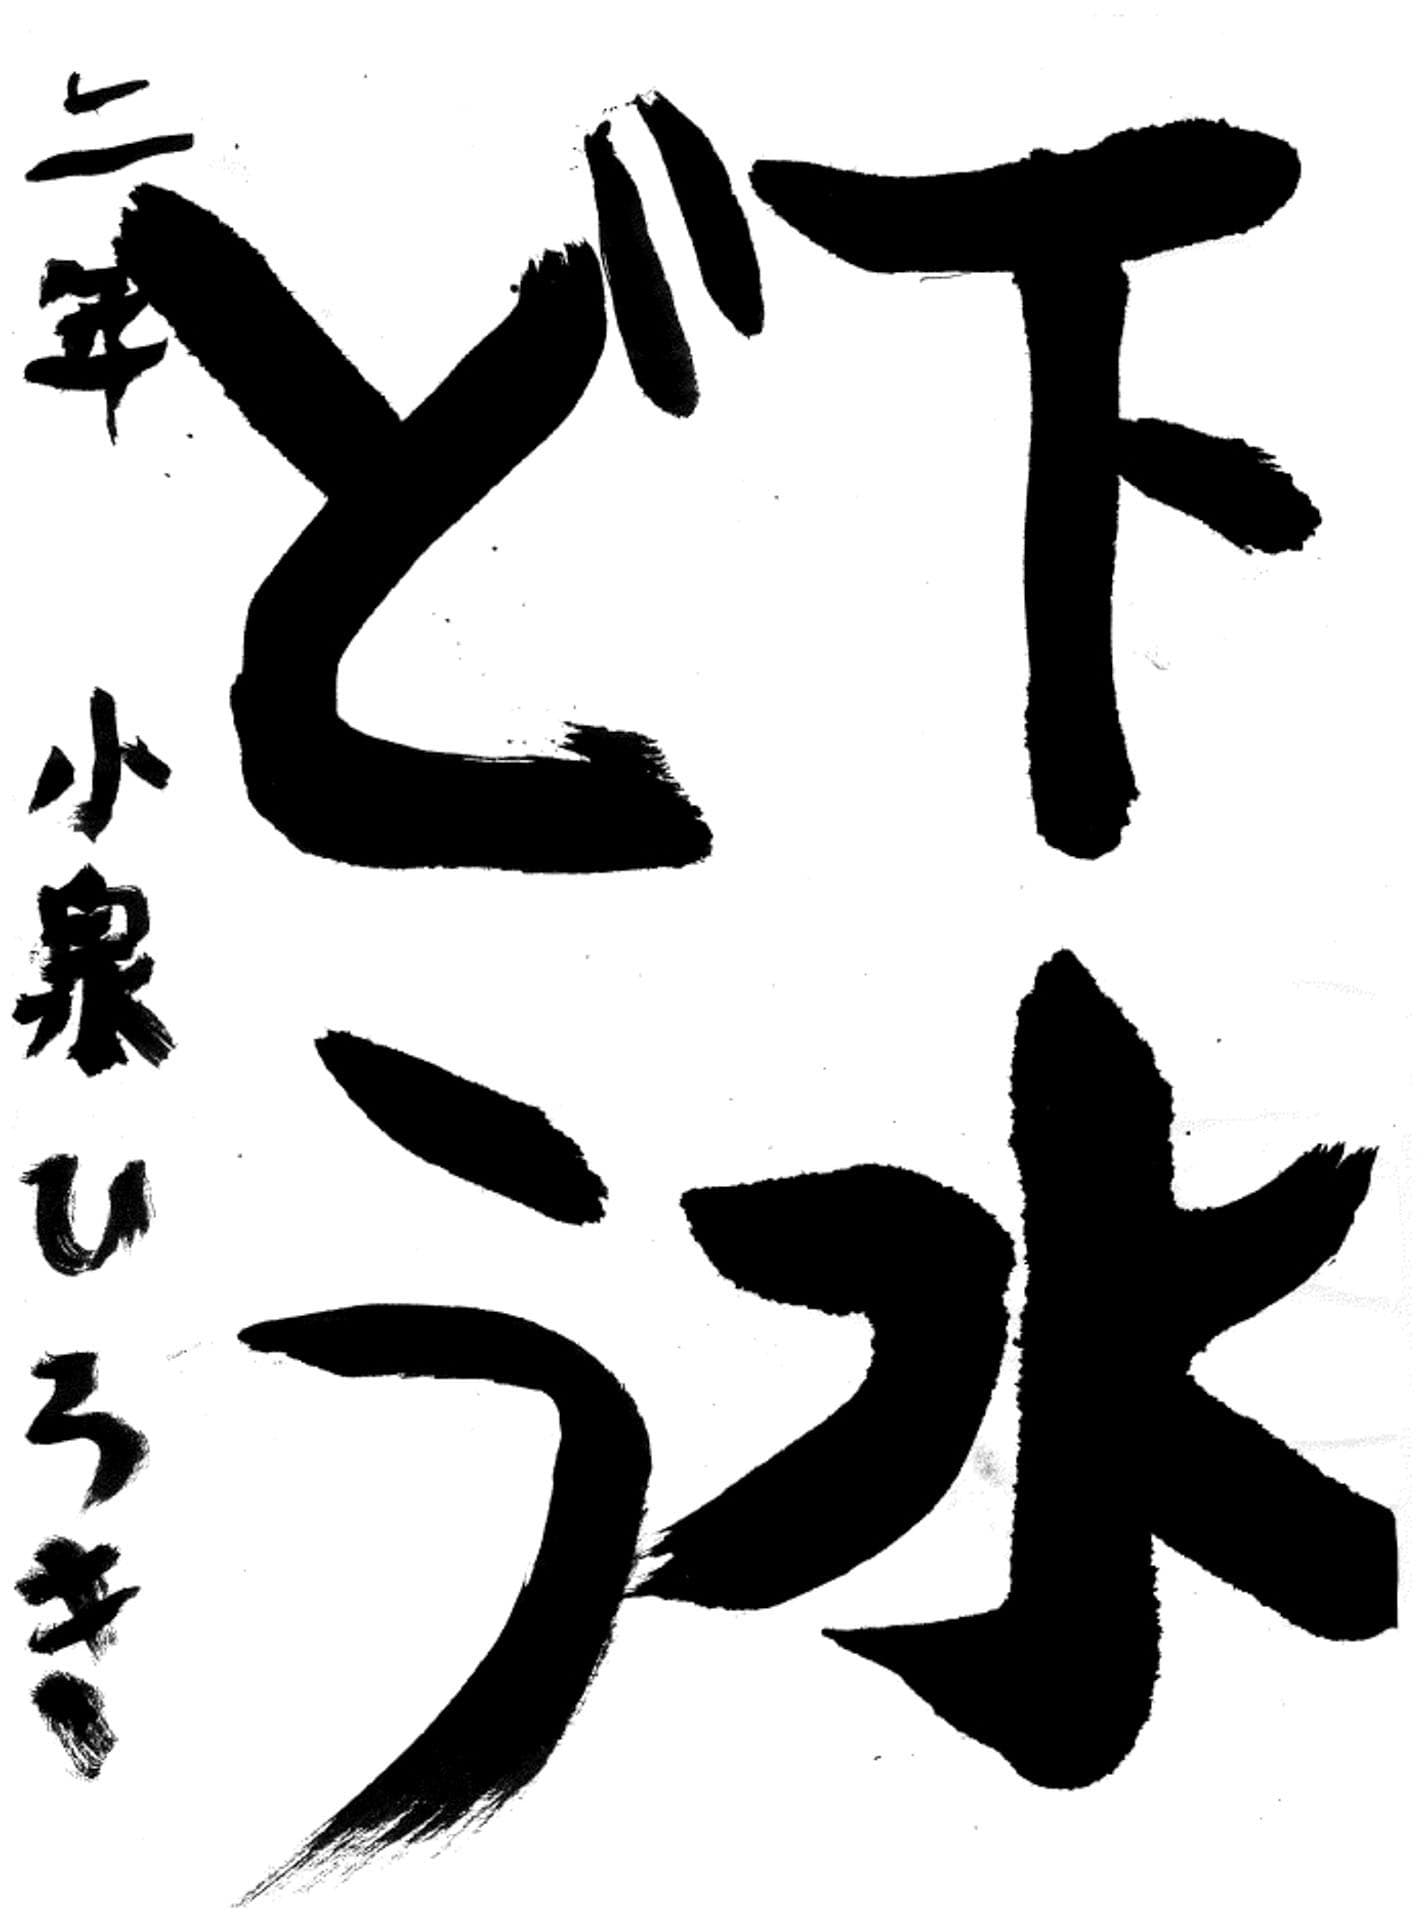 下水
どう
二年 小泉ひろき